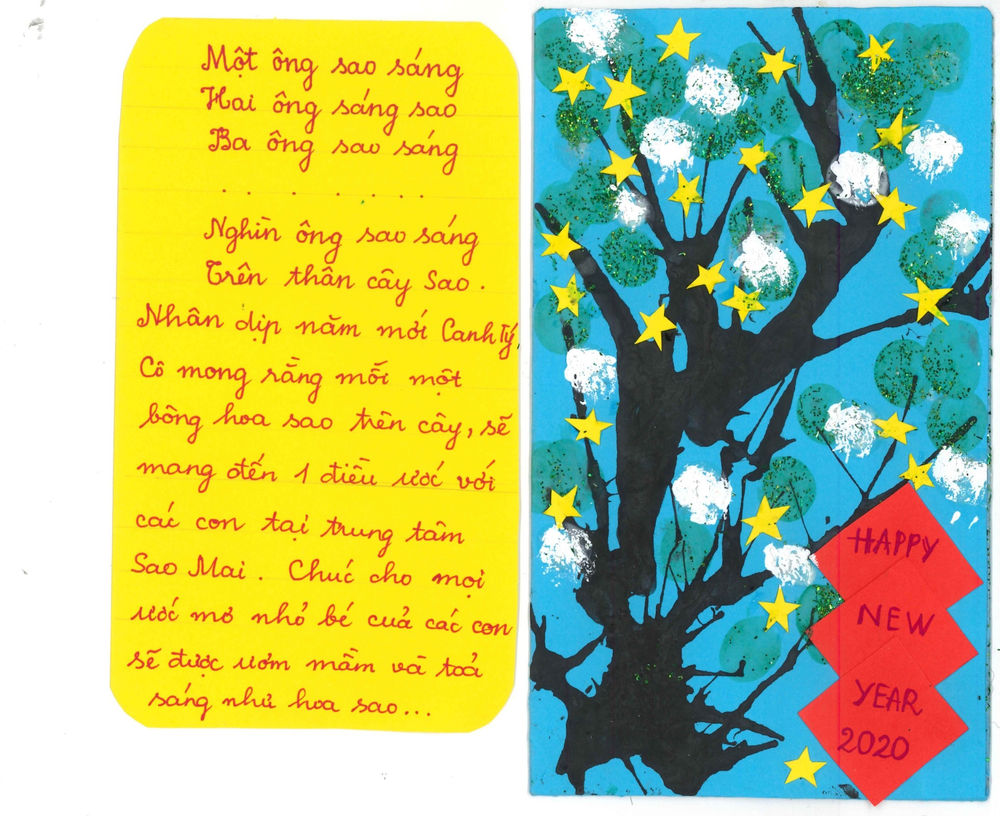 Một ông sao sáng
Hai ông sáng sao
Ba ông sao sáng
. . . . . . . .
Nghìn ông sao sáng
Trên thân cây Sao.
Nhân dịp năm mới Canh Tý,
Cô mong rằng mỗi một
bông hoa sao trên cây, sẽ
mang đến 1 điều ước với
các con tại trung tâm
Sao Mai. Chúc cho mọi
ước mơ nhỏ bé của các con
sẽ được ươm mầm và toả
sáng như hoa sao...
HAPPY
NEW
YEAR
2020